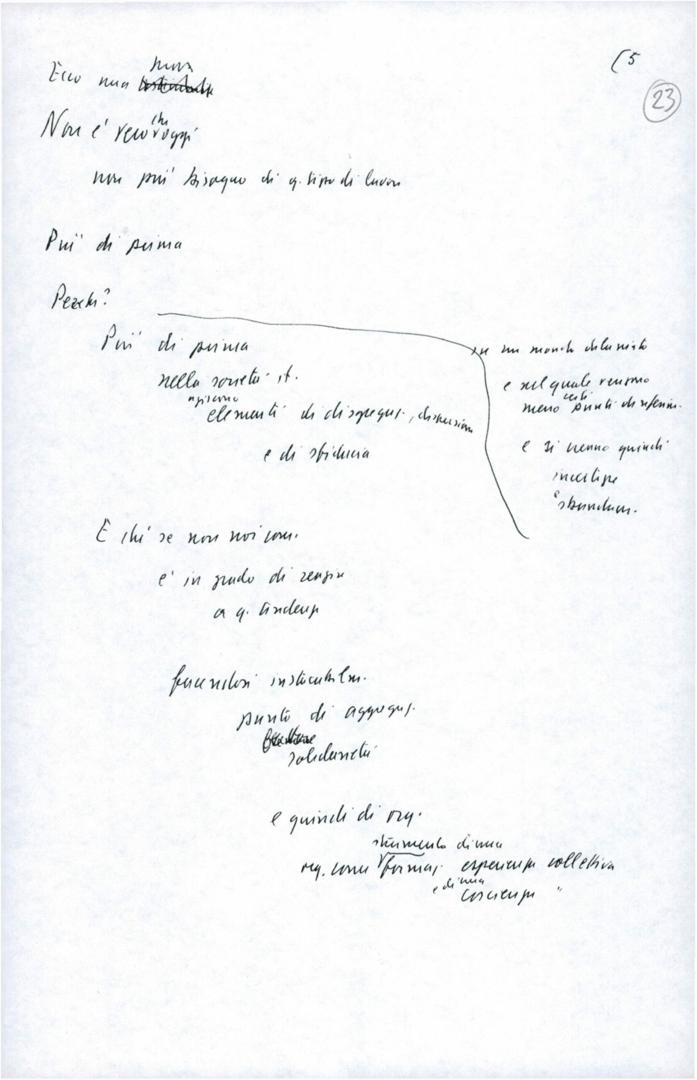 (5
23
nuova
Ecco una
Non è vero che oggi
non più bisogno di q. tipo di lavoro
Più di prima
Perché?
Più di prima
nella società it.
agiscono
elementi di disgregaz., dispersione
e di sfiducia
in un mondo
e nel quale vengono
meno certi punti di riferim.
e si hanno quindi
incertezze
e sbandam.
E chi se non noi com.
è in grado di reagire
a q. tendenza
facendosi instancabilm.
punto di aggregaz.
solidarietà
e quindi di org.
strumento di una
org. come formaz. esperienza collettiva
e di una
coscienza "